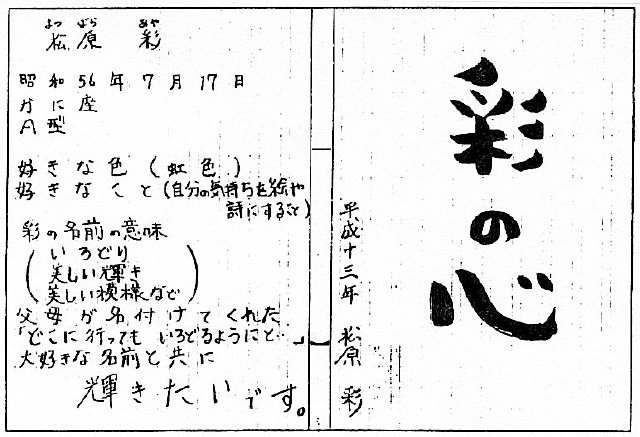 彩の心
平成十三年 松原 彩
まつ ばら あや
松原 彩
昭和56年7月17日
かに座
A型
好きな色(虹色)
好きなこと(自分の気持ちを絵や
詩にすること)
彩の名前の意味
(いろどり
美しい輝き
美しい模様など)
父母が名付けてくれた
「どこに行ってもいろどるようにと…」
大好きな名前と共に
輝きたいです。